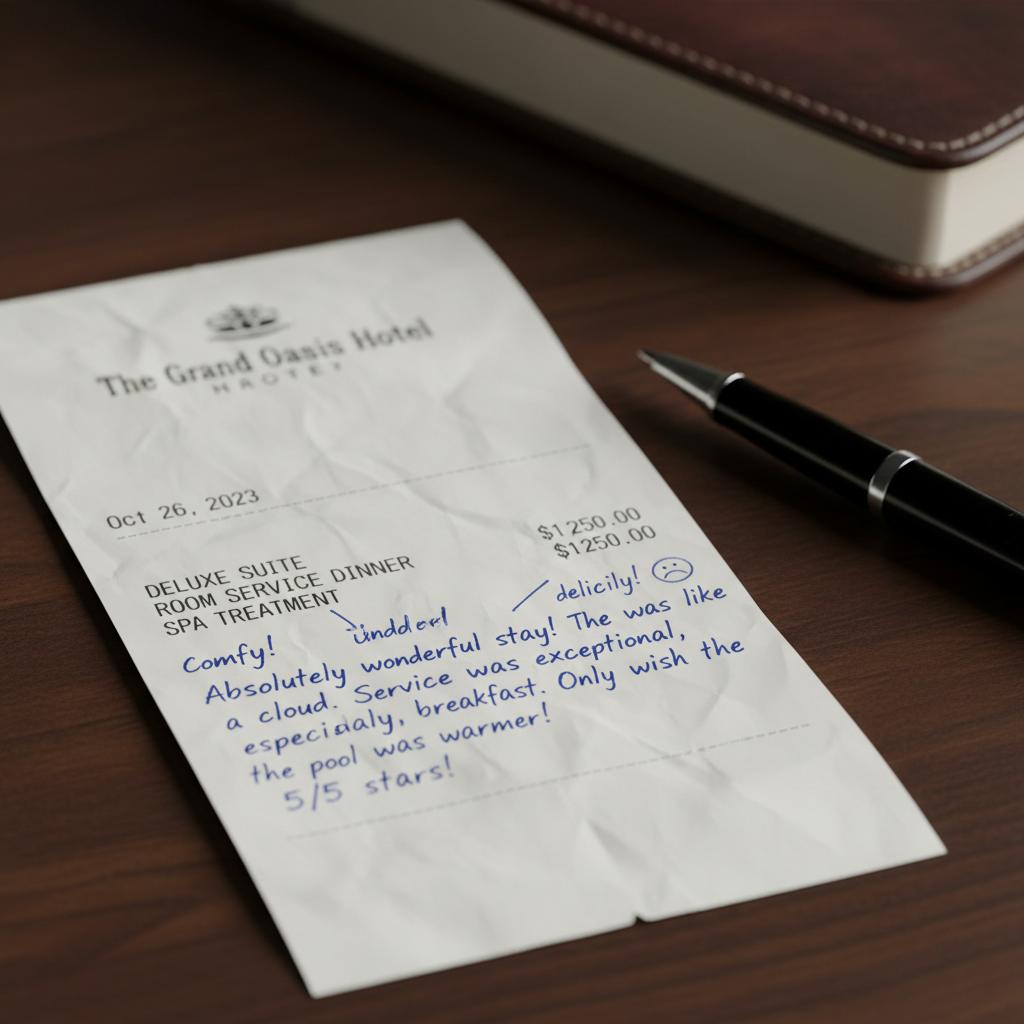 The Grand Oasis Hotel
Oct 26, 2023
$1250.00
$1250.00
DELUXE SUITE
ROOM SERVICE DINNER
SPA TREATMENT
delicily!
Comfy!
Absolutely wonderful stay! The was like
a cloud. Service was exceptional,
breakfast. Only wish the
the pool was warmer!
5/5 stars!